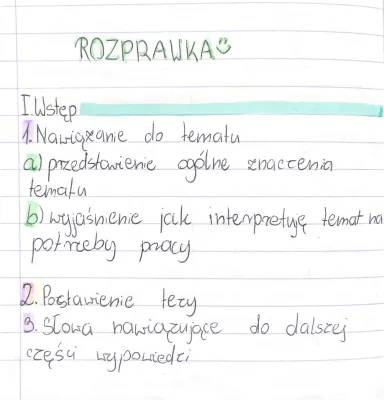 ROZPRAWKA
I. Wstęp
1. Nawiązanie do tematu
a) przedstawienie ogólne znaczenia
tematu
b) wyjaśnienie jak interpretuję temat na
potrzeby pracy
2. Postawienie tezy
3. Słowa nawiązujące do dalszej
części wypowiedzi